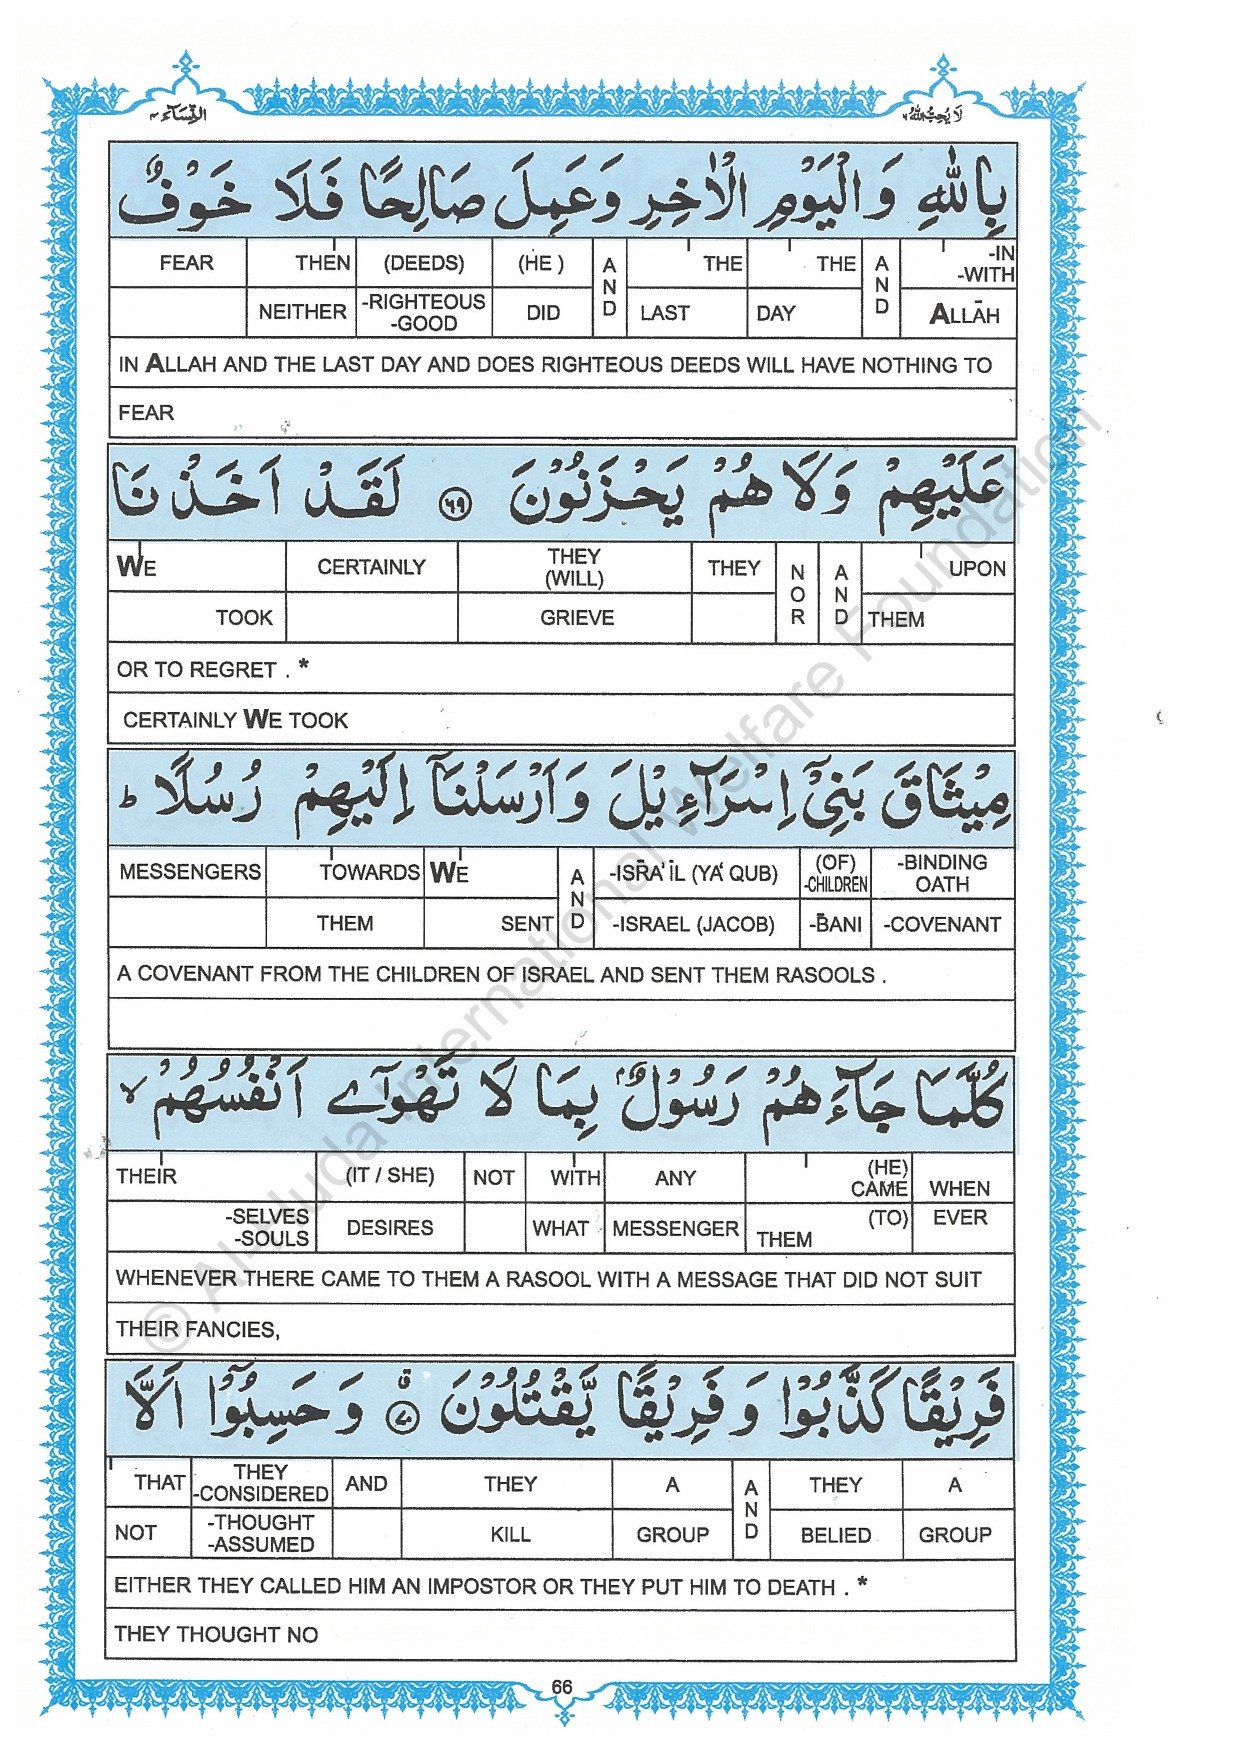 النِّسَآء ٤
لَا يُحِبُّ اللهُ ٦
بِاللّٰهِ وَ الْيَوْمِ الْاٰخِرِ وَ عَمِلَ صَالِحًا فَلَا خَوْفٌ
FEAR THEN (DEEDS) (HE ) AND THE THE AND -IN -WITH
NEITHER -RIGHTEOUS -GOOD DID LAST DAY ALLĀH
IN ALLAH AND THE LAST DAY AND DOES RIGHTEOUS DEEDS WILL HAVE NOTHING TO
FEAR
عَلَيْهِمْ وَلَا هُمْ يَحْزَنُوْنَ ٦٩ لَقَدْ اَخَذْنَا
WE CERTAINLY THEY (WILL) THEY NOR AND UPON
TOOK GRIEVE THEM
OR TO REGRET . *
CERTAINLY WE TOOK
مِيْثَاقَ بَنِيْٓ اِسْرَآءِيْلَ وَ اَرْسَلْنَآ اِلَيْهِمْ رُسُلًا ط
MESSENGERS TOWARDS WE AND -ISRĀ'ĪL (YA'QUB) (OF) -CHILDREN -BINDING OATH
THEM SENT -ISRAEL (JACOB) -BANI -COVENANT
A COVENANT FROM THE CHILDREN OF ISRAEL AND SENT THEM RASOOLS .
كُلَّمَا جَآءَهُمْ رَسُوْلٌۢ بِمَا لَا تَهْوٰٓى اَنْفُسُهُمْ لا
THEIR (IT / SHE) NOT WITH ANY (HE) CAME WHEN
-SELVES -SOULS DESIRES WHAT MESSENGER (TO) THEM EVER
WHENEVER THERE CAME TO THEM A RASOOL WITH A MESSAGE THAT DID NOT SUIT
THEIR FANCIES,
فَرِيْقًا كَذَّبُوْا وَ فَرِيْقًا يَّقْتُلُوْنَ ٧٠ وَ حَسِبُوْٓا اَلَّا
THAT THEY -CONSIDERED AND THEY A AND THEY A
NOT -THOUGHT -ASSUMED KILL GROUP BELIED GROUP
EITHER THEY CALLED HIM AN IMPOSTOR OR THEY PUT HIM TO DEATH . *
THEY THOUGHT NO
66
© Al-Huda International Welfare Foundation